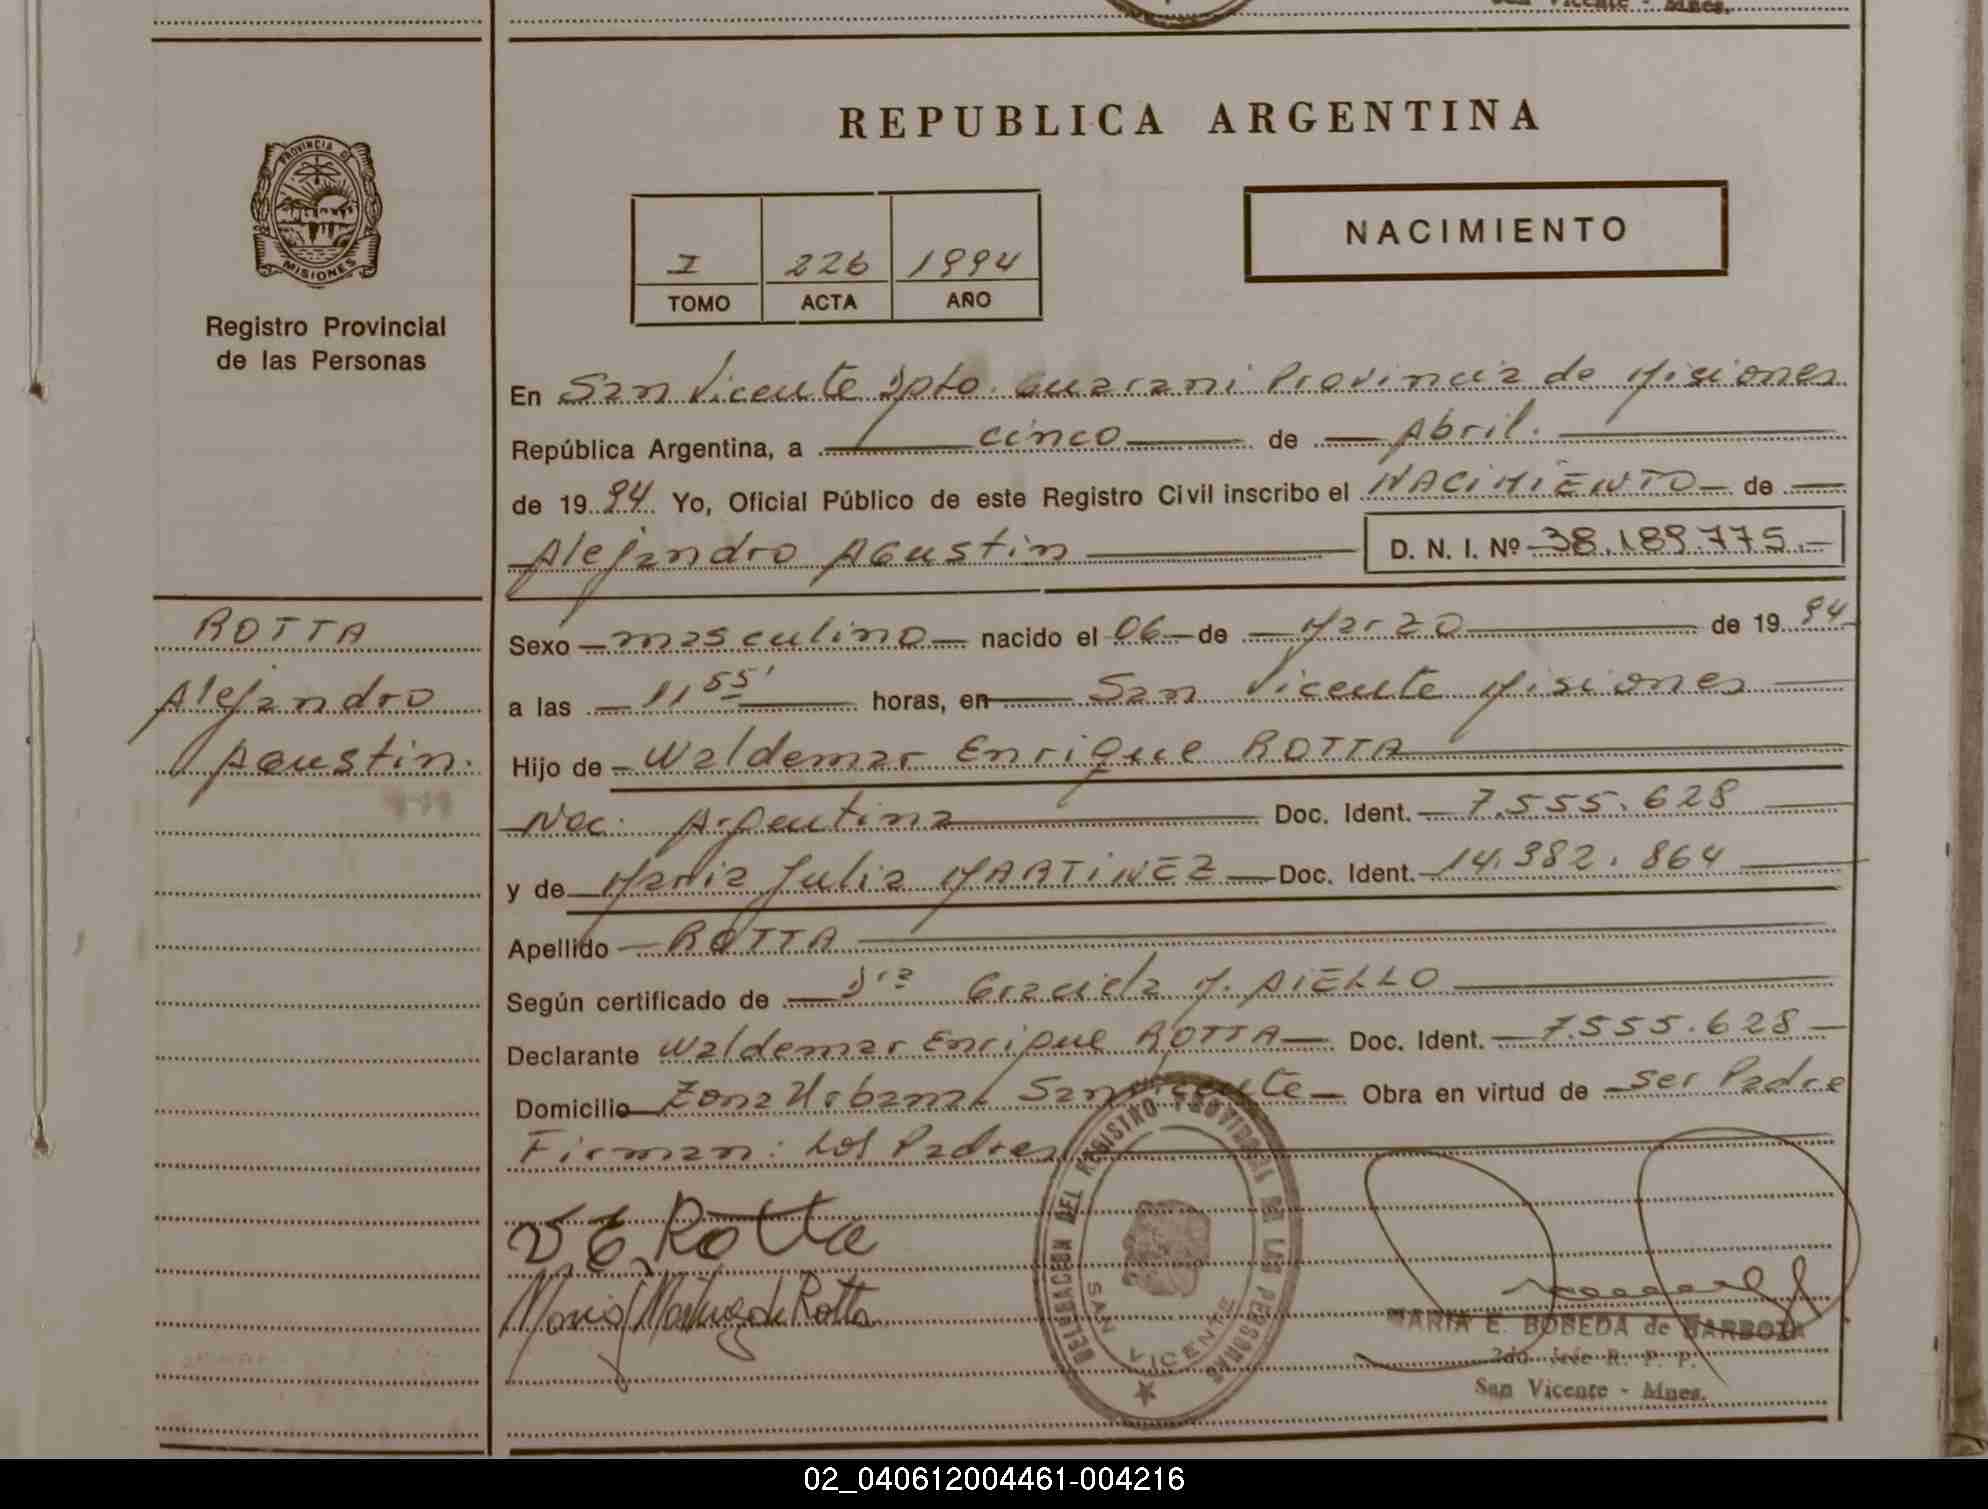 San Vicente - Mnes.
PROVINCIA DE
MISIONES
Registro Provincial
de las Personas
REPUBLICA ARGENTINA
NACIMIENTO
I 226 1994
TOMO ACTA AÑO
En San Vicente Dpto. Guarani Provincia de Misiones
República Argentina, a cinco de Abril.
de 1994 Yo, Oficial Público de este Registro Civil inscribo el NACIMIENTO de
Alejandro Agustin D. N. I. Nº 38.189.775.-
ROTTA
Alejandro
Agustin.
Sexo masculino nacido el 06 de Marzo de 1994
a las 11 55' horas, en San Vicente Misiones
Hijo de Waldemar Enrique ROTTA
Nac. Argentina Doc. Ident. 7.555.628
y de Maria Julia MARTINEZ Doc. Ident. 14.382.864
Apellido ROTTA
Según certificado de Dra Graciela M. AIELLO
Declarante Waldemar Enrique ROTTA Doc. Ident. 7.555.628
Domicilio Zona Urbana San Vicente Obra en virtud de ser Padre
Firman: Los Padres
W E. Rotta
Maria J Martinez de Rotta
DELEGACION DEL REGISTRO PROVINCIAL DE LAS PERSONAS
SAN VICENTE
MARIA E. BOBEDA de BARBOZA
2do Jefe R. P. P.
San Vicente - Mnes.
02_040612004461-004216